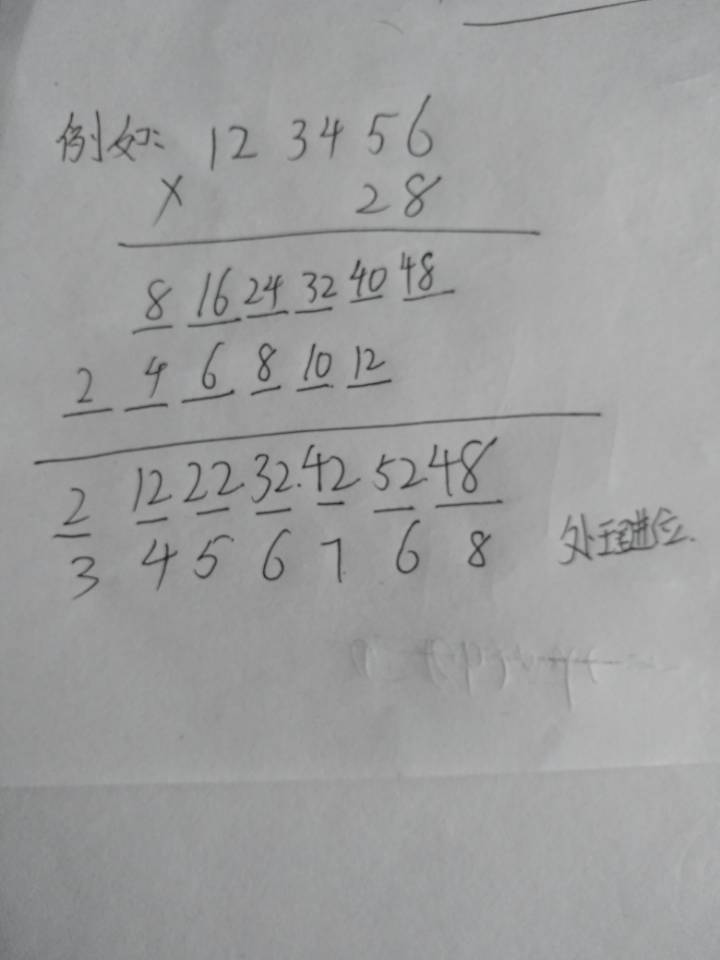 例如: 123456
× 28
8 16 24 32 40 48
2 4 6 8 10 12
2 12 22 32 42 52 48
3 4 5 6 7 6 8 处理进位.